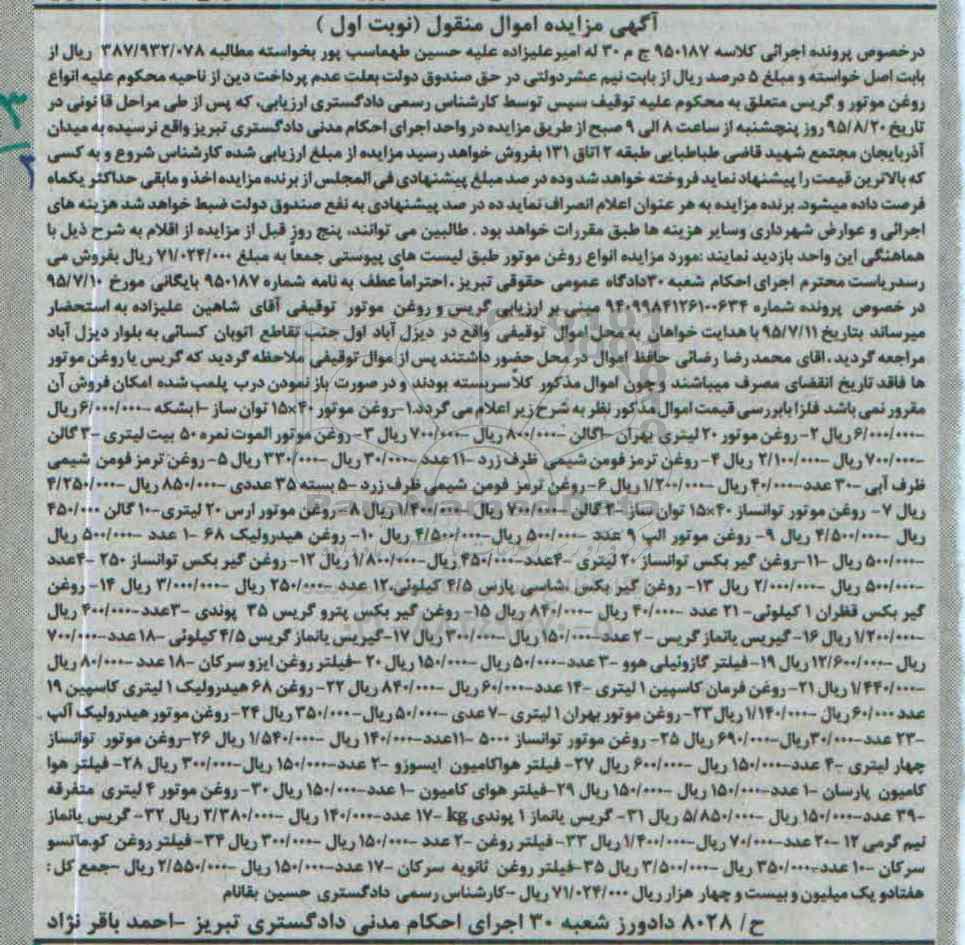 آگهی مزایده اموال منقول (نوبت اول )
درخصوص پرونده اجرائی کلاسه ۹۵۰۱۸۷ ج م ۳۰ له امیرعلیزاده علیه حسین طهماسب پور بخواسته مطالبه ۳۸۷/۹۳۲/۰۷۸ ریال از
بابت اصل خواسته و مبلغ ۵ درصد ریال از بابت نیم عشردولتی در حق صندوق دولت بعلت عدم پرداخت دین از ناحیه محکوم علیه انواع
روغن موتور و گریس متعلق به محکوم علیه توقیف سپس توسط کارشناس رسمی دادگستری ارزیابی، که پس از طی مراحل قانونی در
تاریخ ۹۵/۸/۲۰ روز پنجشنبه از ساعت ۸ الی ۹ صبح از طریق مزایده در واحد اجرای احکام مدنی دادگستری تبریز واقع نرسیده به میدان
آذربایجان مجتمع شهید قاضی طباطبایی طبقه ۲ اتاق ۱۳۱ بفروش خواهد رسید مزایده از مبلغ ارزیابی شده کارشناس شروع و به کسی
که بالاترین قیمت را پیشنهاد نماید فروخته خواهد شد وده در صد مبلغ پیشنهادی فی المجلس از برنده مزایده اخذ و مابقی حداکثر یکماه
فرصت داده میشود. برنده مزایده به هر عنوان اعلام انصراف نماید ده در صد پیشنهادی به نفع صندوق دولت ضبط خواهد شد هزینه های
اجرائی و عوارض شهرداری وسایر هزینه ها طبق مقررات خواهد بود . طالبین می توانند، پنج روز قبل از مزایده از اقلام به شرح ذیل با
هماهنگی این واحد بازدید نمایند :مورد مزایده انواع روغن موتور طبق لیست های پیوستی جمعاً به مبلغ ۷۱/۰۲۴/۰۰۰ ریال بفروش می
رسدریاست محترم اجرای احکام شعبه ۳۰دادگاه عمومی حقوقی تبریز .احتراماً عطف به نامه شماره ۹۵۰۱۸۷ بایگانی مورخ ۹۵/۷/۱۰
در خصوص پرونده شماره ۹۴۰۹۹۸۴۱۲۶۱۰۰۶۳۴ مبنی بر ارزیابی گریس و روغن موتور توقیفی آقای شاهین علیزاده به استحضار
میرساند بتاریخ ۹۵/۷/۱۱ با هدایت خواهان به محل اموال توقیفی واقع در دیزل آباد اول جنب تقاطع اتوبان کسائی به بلوار دیزل آباد
مراجعه گردید ،اقای محمد رضا رضائی حافظ اموال در محل حضور داشتند پس از موال توقیفی ملاحظه گردید که گریس یا روغن موتور
ها فاقد تاریخ انقضای مصرف میباشند و چون اموال مذکور کلاً سربسته بودند و در صورت باز نمودن درب پلمب شده امکان فروش آن
مقرور نمی باشد فلزا بابررسی قیمت اموال مذکور نظر به شرح زیر اعلام می گردد.۱-روغن موتور ۴۰×۱۵ توان ساز -۱بشکه -۶/۰۰۰/۰۰۰ریال
-۶/۰۰۰/۰۰۰ ریال ۲- روغن موتور ۲۰ لیتری بهران -۱گالن -۸۰۰/۰۰۰ ریال -۷۰۰/۰۰۰ ریال ۳- روغن موتور الموت نمره ۵۰ بیت لیتری -۳ گالن
-۷۰۰/۰۰۰ ریال -۲/۱۰۰/۰۰۰ ریال ۴- روغن ترمز فومن شیمی ظرف زرد -۱۱ عدد -۳۰/۰۰۰ ریال -۳۳۰/۰۰۰ ریال ۵- روغن ترمز فومن شیمی
ظرف آبی -۳۰ عدد-۴۰/۰۰۰ ریال -۱/۲۰۰/۰۰۰ ریال ۶- روغن ترمز فومن شیمی ظرف زرد -۵ بسته ۳۵ عددی -۸۵۰/۰۰۰ ریال -۴/۲۵۰/۰۰۰
ریال ۷- روغن موتور توانساز ۴۰×۱۵ توان ساز -۲ گالن -۷۰۰/۰۰۰ ریال -۱/۴۰۰/۰۰۰ ریال ۸-روغن موتور ارس ۲۰ لیتری-۱۰ گالن ۴۵۰/۰۰۰
ریال -۴/۵۰۰/۰۰۰ ریال ۹- روغن موتور الپ ۹ عدد -۵۰۰/۰۰۰ ریال-۴/۵۰۰/۰۰۰ ریال ۱۰- روغن هیدرولیک ۶۸ -۱ عدد -۵۰۰/۰۰۰ ریال
-۵۰۰/۰۰۰ ریال -۱۱-روغن گیر بکس توانساز ۲۰ لیتری -۴عدد-۴۵۰/۰۰۰ ریال-۱/۸۰۰/۰۰۰ ریال ۱۲- روغن گیر بکس توانساز ۲۵۰ -۴عدد
-۵۰۰/۰۰۰ ریال -۲/۰۰۰/۰۰۰ ریال ۱۳- روغن گیر بکس ،شاسی پارس ۴/۵ کیلوئی،۱۲ عدد -۲۵۰/۰۰۰ ریال -۳/۰۰۰/۰۰۰ ریال ۱۴- روغن
گیر بکس قطران ۱ کیلوئی- ۲۱ عدد -۴۰/۰۰۰ ریال -۸۴۰/۰۰۰ ریال ۱۵- روغن گیر بکس پترو گریس ۳۵ پوندی -۳عدد-۴۰۰/۰۰۰ ریال
-۱/۲۰۰/۰۰۰ ریال ۱۶- گیریس یانماز گریس -۲ عدد-۱۵۰/۰۰۰ ریال -۳۰۰/۰۰۰ ریال ۱۷-گیریس یانماز گریس ۴/۵ کیلوئی -۱۸ عدد-۷۰۰/۰۰۰
ریال -۱۲/۶۰۰/۰۰۰ ریال ۱۹- فیلتر گازوئیلی هوو -۳ عدد-۵۰/۰۰۰ ریال -۱۵۰/۰۰۰ ریال ۲۰ -فیلتر روغن ایزو سرکان -۱۸ عدد -۸۰/۰۰۰ ریال
-۱/۴۴۰/۰۰۰ ریال ۲۱- روغن فرمان کاسپین ۱ لیتری -۱۴ عدد-۶۰/۰۰۰ ریال -۸۴۰/۰۰۰ ریال ۲۲- روغن ۶۸ هیدرولیک ۱ لیتری کاسپین ۱۹
عدد ۶۰/۰۰۰ ریال -۱/۱۴۰/۰۰۰ ریال ۲۳- روغن موتور بهران ۱ لیتری -۷ عدی -۵۰/۰۰۰ ریال -۳۵۰/۰۰۰ ریال ۲۴- روغن موتور هیدرولیک آلپ
-۲۳ عدد-۳۰/۰۰۰ریال -۶۹۰/۰۰۰ ریال ۲۵- روغن موتور توانساز ۵۰۰۰ -۱۱عدد-۱۴۰/۰۰۰ ریال -۱/۵۴۰/۰۰۰ ریال ۲۶-روغن موتور توانساز
چهار لیتری -۴ عدد-۱۵۰/۰۰۰ ریال -۶۰۰/۰۰۰ ریال ۲۷- فیلتر هواکامیون ایسوزو -۲ عدد-۱۵۰/۰۰۰ ریال-۳۰۰/۰۰۰ ریال ۲۸- فیلتر هوا
کامیون پارسان -۱ عدد-۱۵۰/۰۰۰ ریال -۱۵۰/۰۰۰ ریال ۲۹-فیلتر هوای کامیون -۱ عدد-۱۵۰/۰۰۰ ریال ۳۰- روغن موتور ۴ لیتری متفرقه
-۳۹ عدد-۱۵۰/۰۰۰ ریال -۵/۸۵۰/۰۰۰ ریال ۳۱- گریس یانماز ۱ پوندی kg -۱۷ عدد-۱۴۰/۰۰۰ ریال -۲/۳۸۰/۰۰۰ ریال ۳۲- گریس یانماز
نیم گرمی ۱۲ -۲۰ عدد-۷۰/۰۰۰ ریال-۱/۴۰۰/۰۰۰ ریال ۳۳- فیلتر روغن -۲ عدد -۱۵۰/۰۰۰ ریال -۳۰۰/۰۰۰ ریال ۳۴- فیلتر روغن کوماتسو
سرکان -۱۰ عدد-۳۵۰/۰۰۰ ریال -۳/۵۰۰/۰۰۰ ریال ۳۵-فیلتر روغن ثانویه سرکان -۱۷ عدد-۱۵۰/۰۰۰ ریال -۲/۵۵۰/۰۰۰ ریال -جمع کل :
هفتادو یک میلیون و بیست و چهار هزار ریال ۷۱/۰۲۴/۰۰۰ ریال -کارشناس رسمی دادگستری حسین بقانام
ح/ ۸۰۲۸ دادورز شعبه ۳۰ اجرای احکام مدنی دادگستری تبریز -احمد باقر نژاد